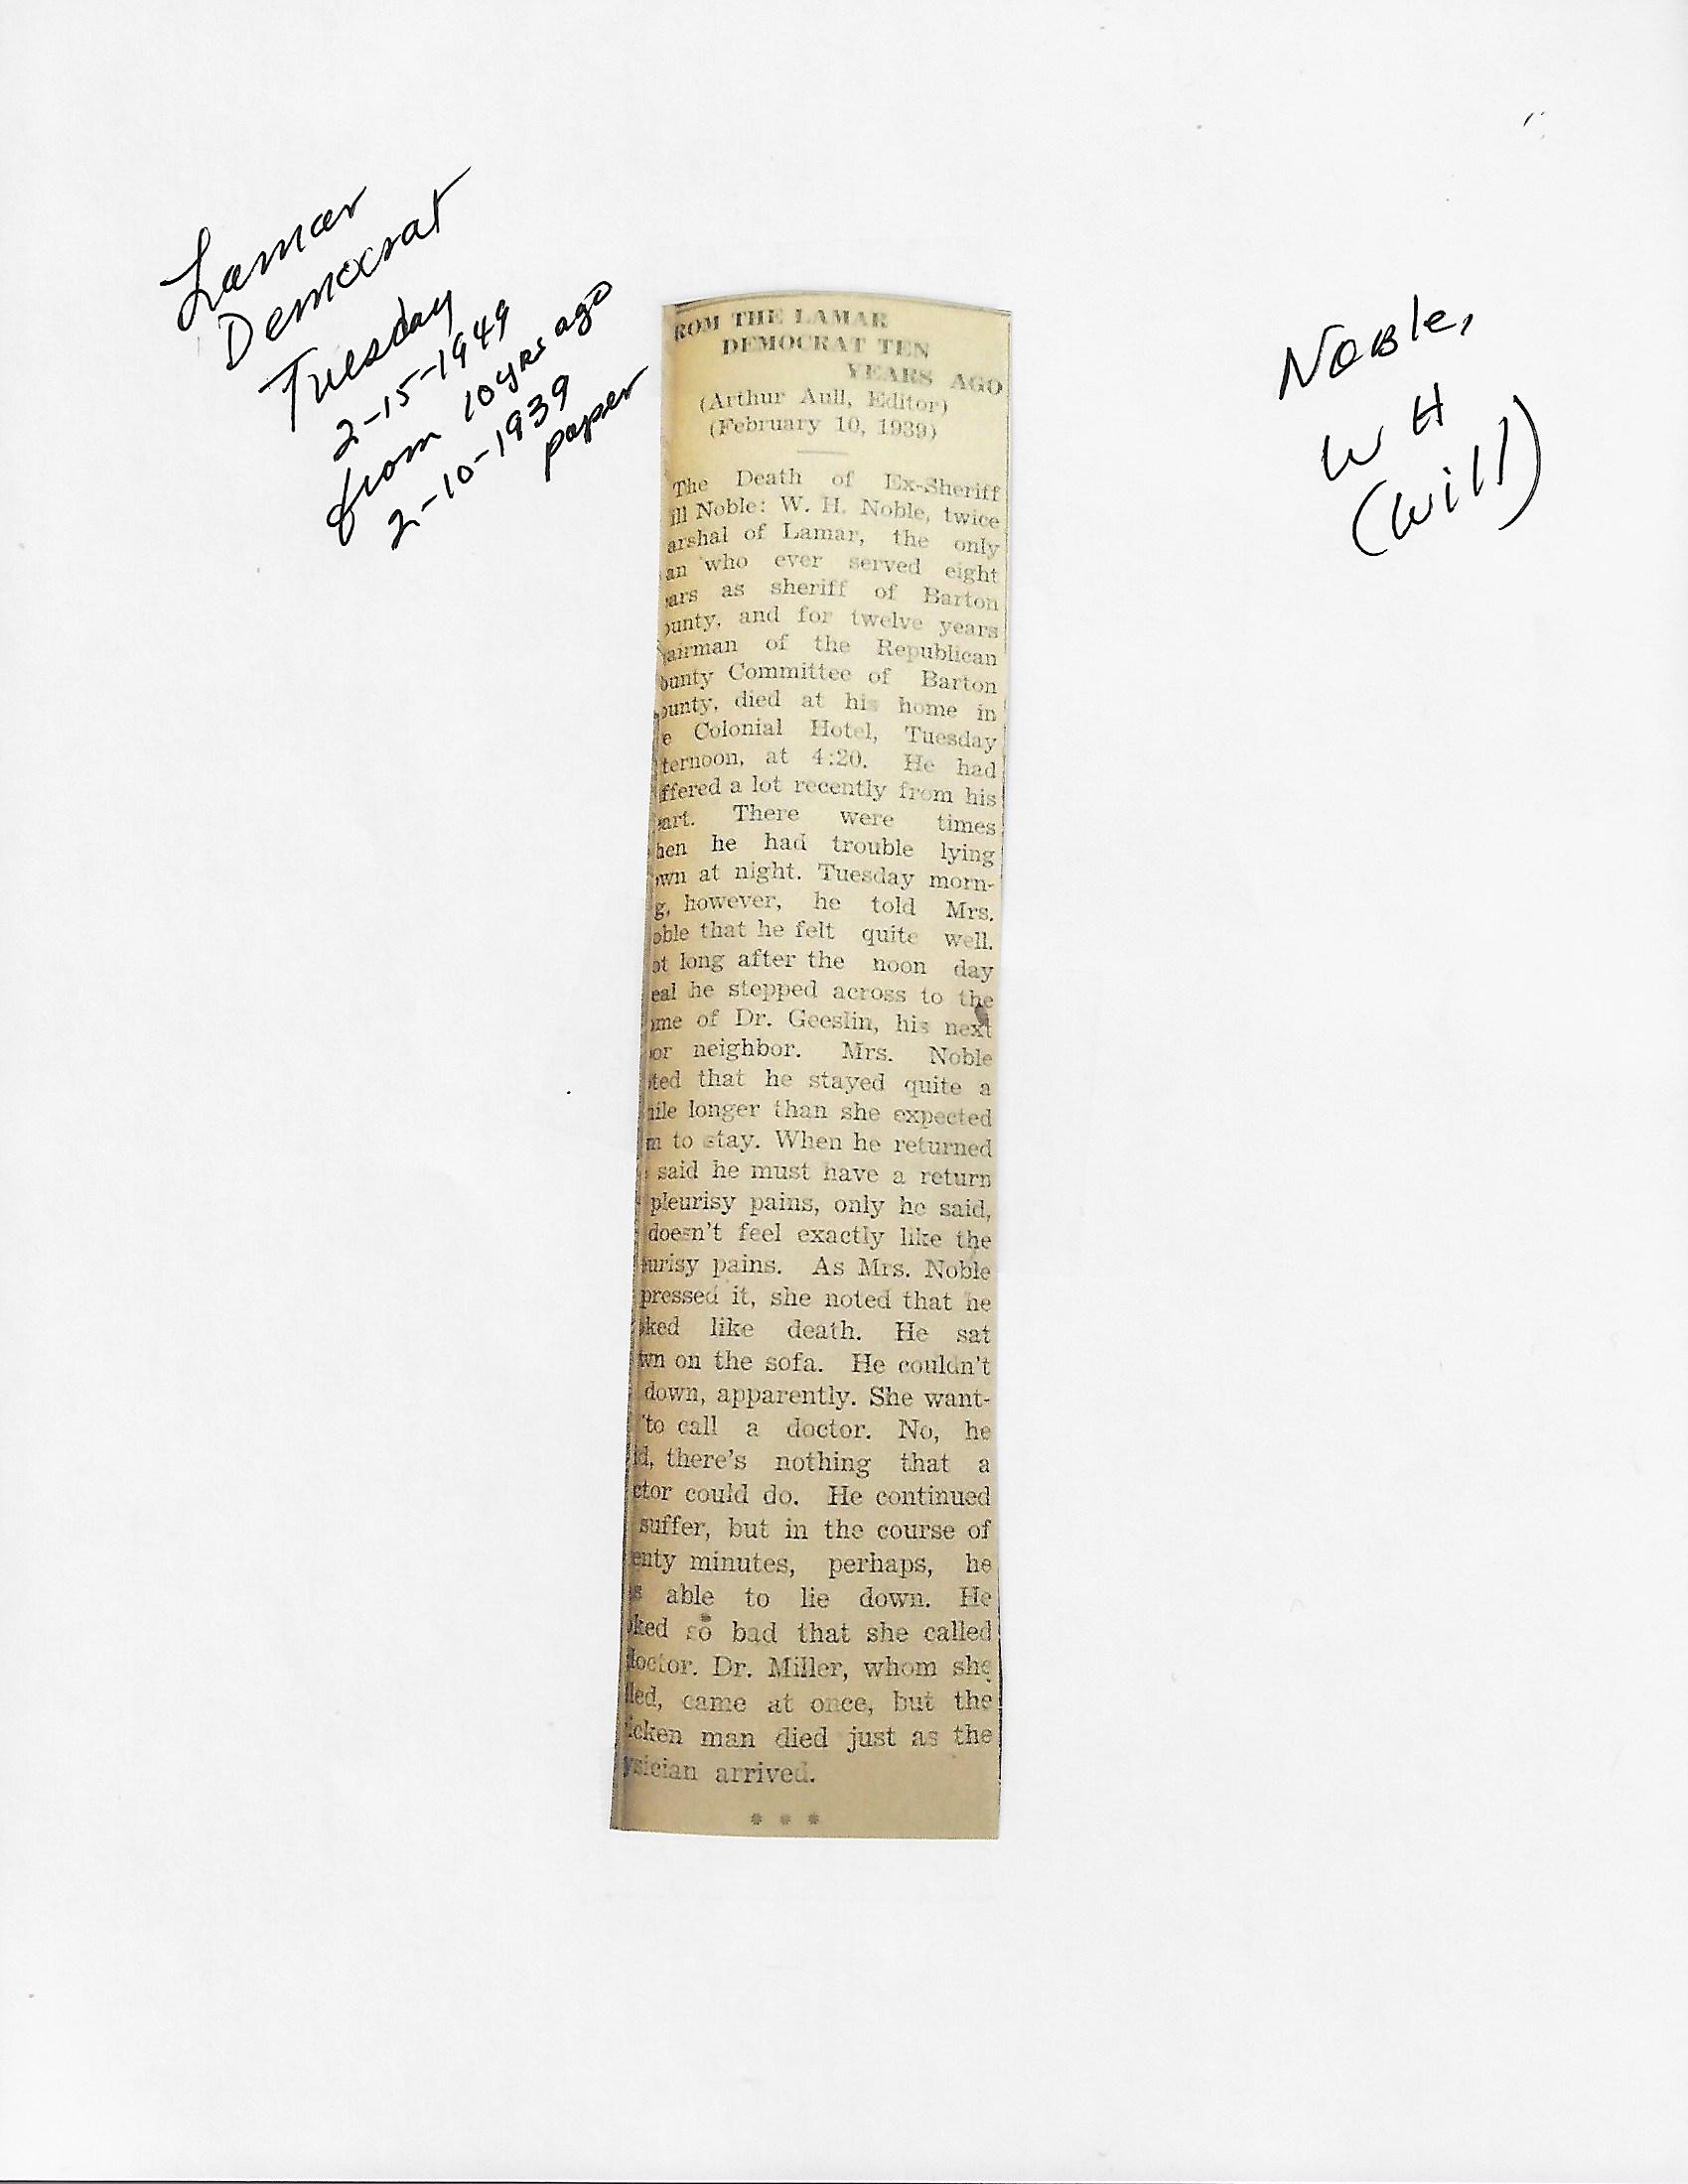 Lamar
Democrat
Tuesday
2-15-1949
from 10 yrs ago
2-10-1939
paper
Noble,
W H
(Will)
ROM THE LAMAR
DEMOCRAT TEN
YEARS AGO
(Arthur Aull, Editor)
(February 10, 1939)
The Death of Ex-Sheriff
ill Noble: W. H. Noble, twice
arshal of Lamar, the only
an who ever served eight
ears as sheriff of Barton
ounty, and for twelve years
airman of the Republican
ounty Committee of Barton
ounty, died at his home in
e Colonial Hotel, Tuesday
ternoon, at 4:20. He had
ffered a lot recently from his
eart. There were times
hen he had trouble lying
own at night. Tuesday morn-
g, however, he told Mrs.
oble that he felt quite well.
ot long after the noon day
eal he stepped across to the
ome of Dr. Geeslin, his next
oor neighbor. Mrs. Noble
oted that he stayed quite a
hile longer than she expected
m to stay. When he returned
said he must have a return
pleurisy pains, only he said,
doesn't feel exactly like the
eurisy pains. As Mrs. Noble
pressed it, she noted that he
oked like death. He sat
wn on the sofa. He couldn't
down, apparently. She want-
to call a doctor. No, he
id, there's nothing that a
ctor could do. He continued
suffer, but in the course of
enty minutes, perhaps, he
s able to lie down. He
oked so bad that she called
doctor. Dr. Miller, whom she
lled, came at once, but the
icken man died just as the
ysician arrived.
* * *